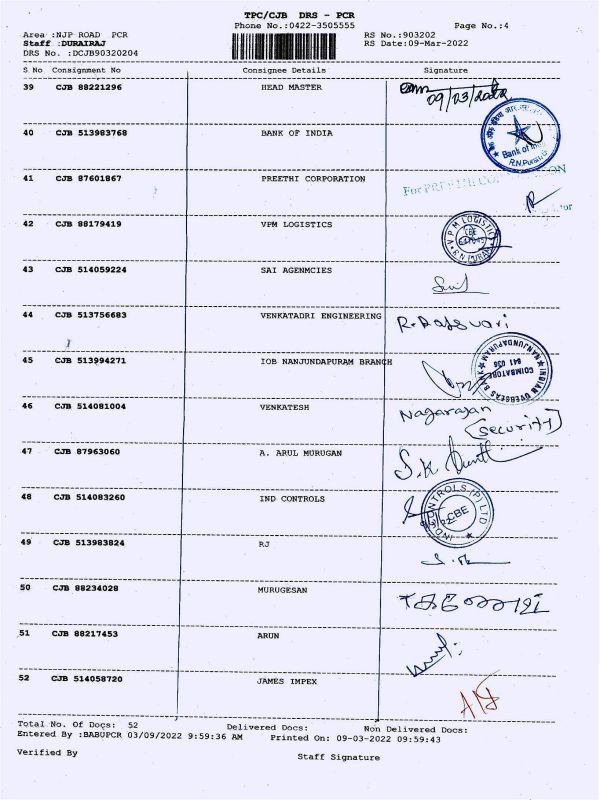 TPC/CJB DRS - PCR
Phone No.:0422-3505555 Page No.:4
Area :NJP ROAD PCR RS No.:903202
Staff :DURAIRAJ RS Date:09-Mar-2022
DRS No. :DCJB90320204
S No Consignment No Consignee Details Signature
39 CJB 88221296 HEAD MASTER 09/03/2022
40 CJB 513983768 BANK OF INDIA Bank of
41 CJB 87601867 PREETHI CORPORATION For
42 CJB 88179419 VPM LOGISTICS VPM LOGISTICS CBE
43 CJB 514059224 SAI AGENMCIES
44 CJB 513756683 VENKATADRI ENGINEERING R. Rajswari
45 CJB 513994271 IOB NANJUNDAPURAM BRANCH INDIAN OVERSEAS BANK NANJUNDAPURAM COIMBATORE 641 036
46 CJB 514081004 VENKATESH Nagarajan
(Security)
47 CJB 87963060 A. ARUL MURUGAN S.K
48 CJB 514083260 IND CONTROLS IND CONTROLS (P) LTD CBE
49 CJB 513983824 RJ
50 CJB 88234028 MURUGESAN
51 CJB 88217453 ARUN
52 CJB 514058720 JAMES IMPEX
Total No. Of Docs: 52 Delivered Docs: Non Delivered Docs:
Entered By :BABUPCR 03/09/2022 9:59:36 AM Printed On: 09-03-2022 09:59:43
Verified By Staff Signature